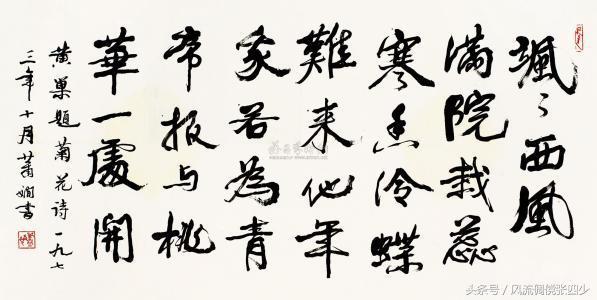 颯〻西風
滿院栽蕊
寒香冷蝶
難来他年
我若為青
帝报与桃
華一處開
黄巢题菊花诗一九七
三年十月萧娴书
头条号 / 风流倜傥张四少